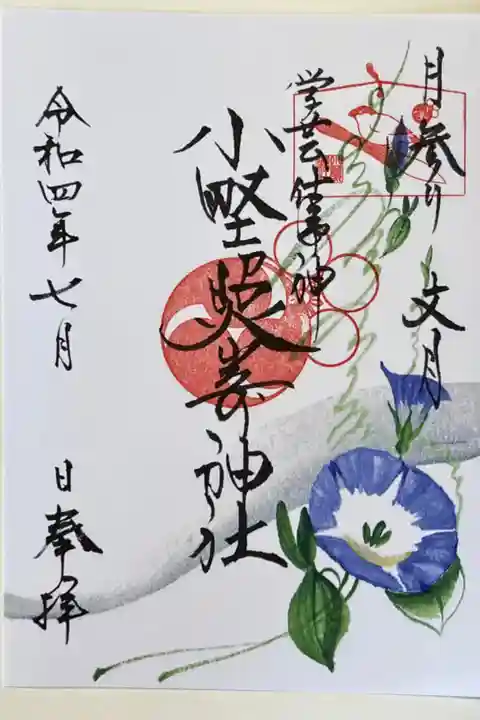 月参り 文月
学芸の神
小野照崎神社
令和四年七月 日奉拝